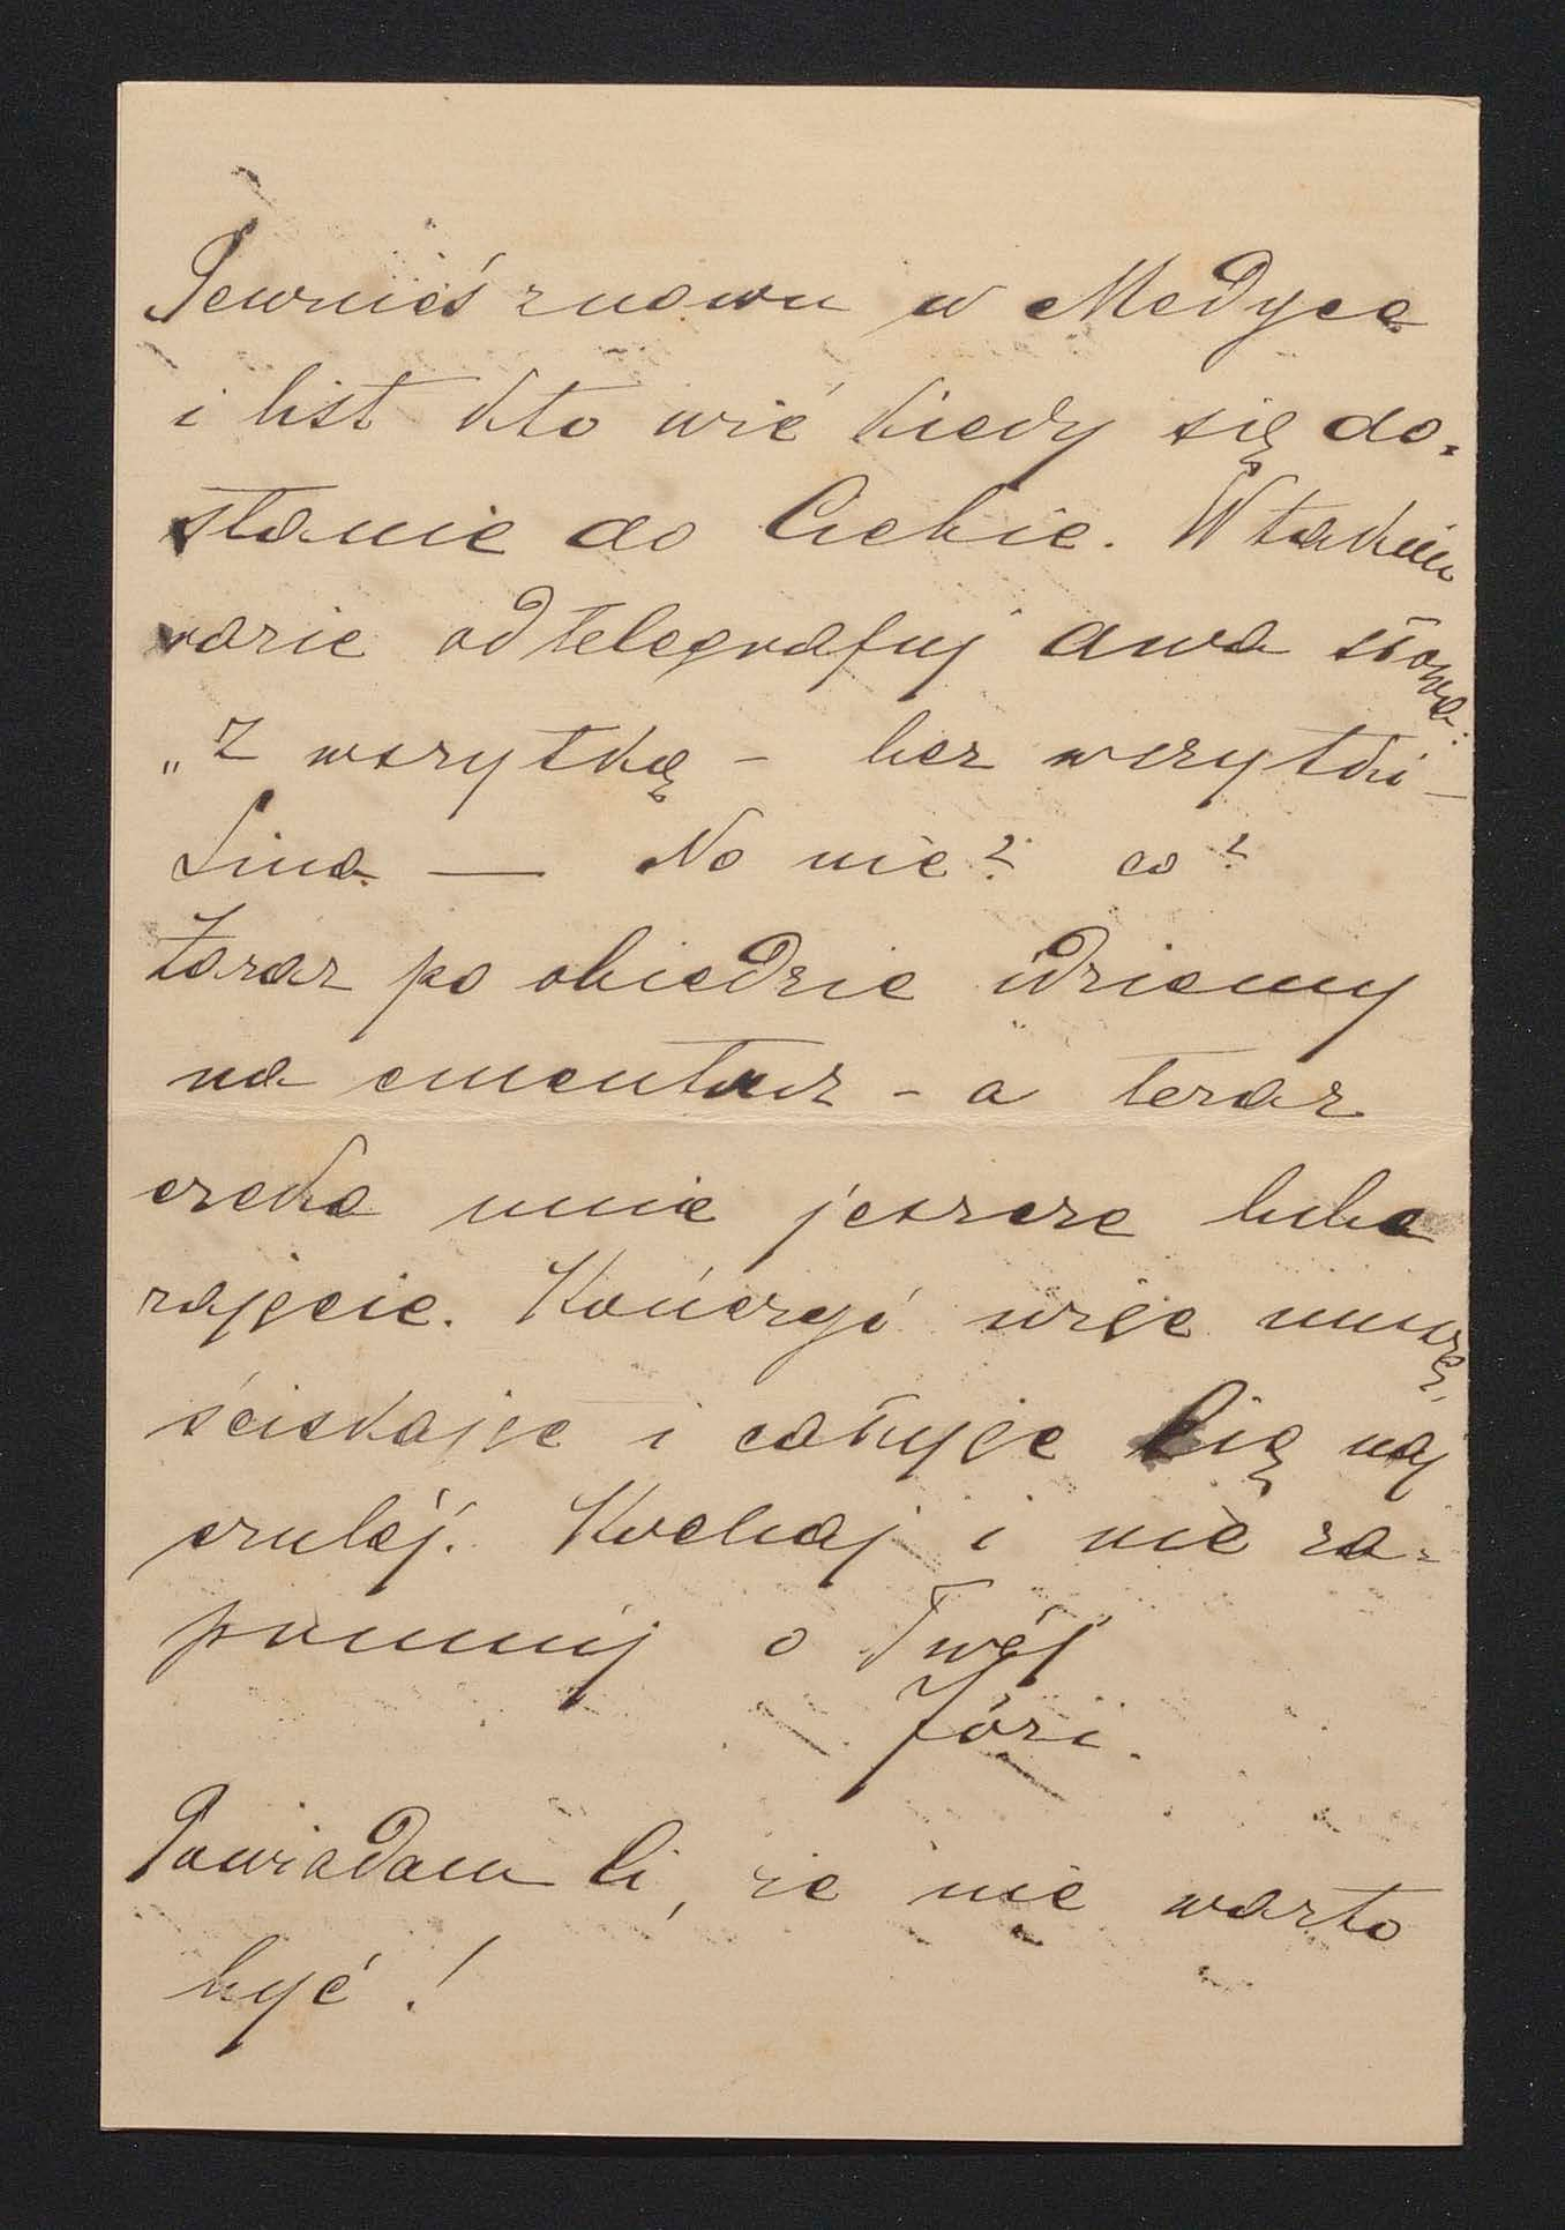 Pewnieś znowu w Medyce
i list kto wié kiedy się do-
stanie do Ciebie. W takim
razie odtelegrafuj dwa słowa:
„Z wszytką – bez wszytki –
Lina — No nie? co?
Zaraz po obiedzie idziemy
na cmentarz - a teraz
czeka mnie jeszcze luba
zajęcie. Kończyć więc muszę,
ściskając i całując Cię naj
czuléj. Kochaj i nie za-
pomnij o Twéj
Józi.
Powiadam Ci, że nie warto
być!